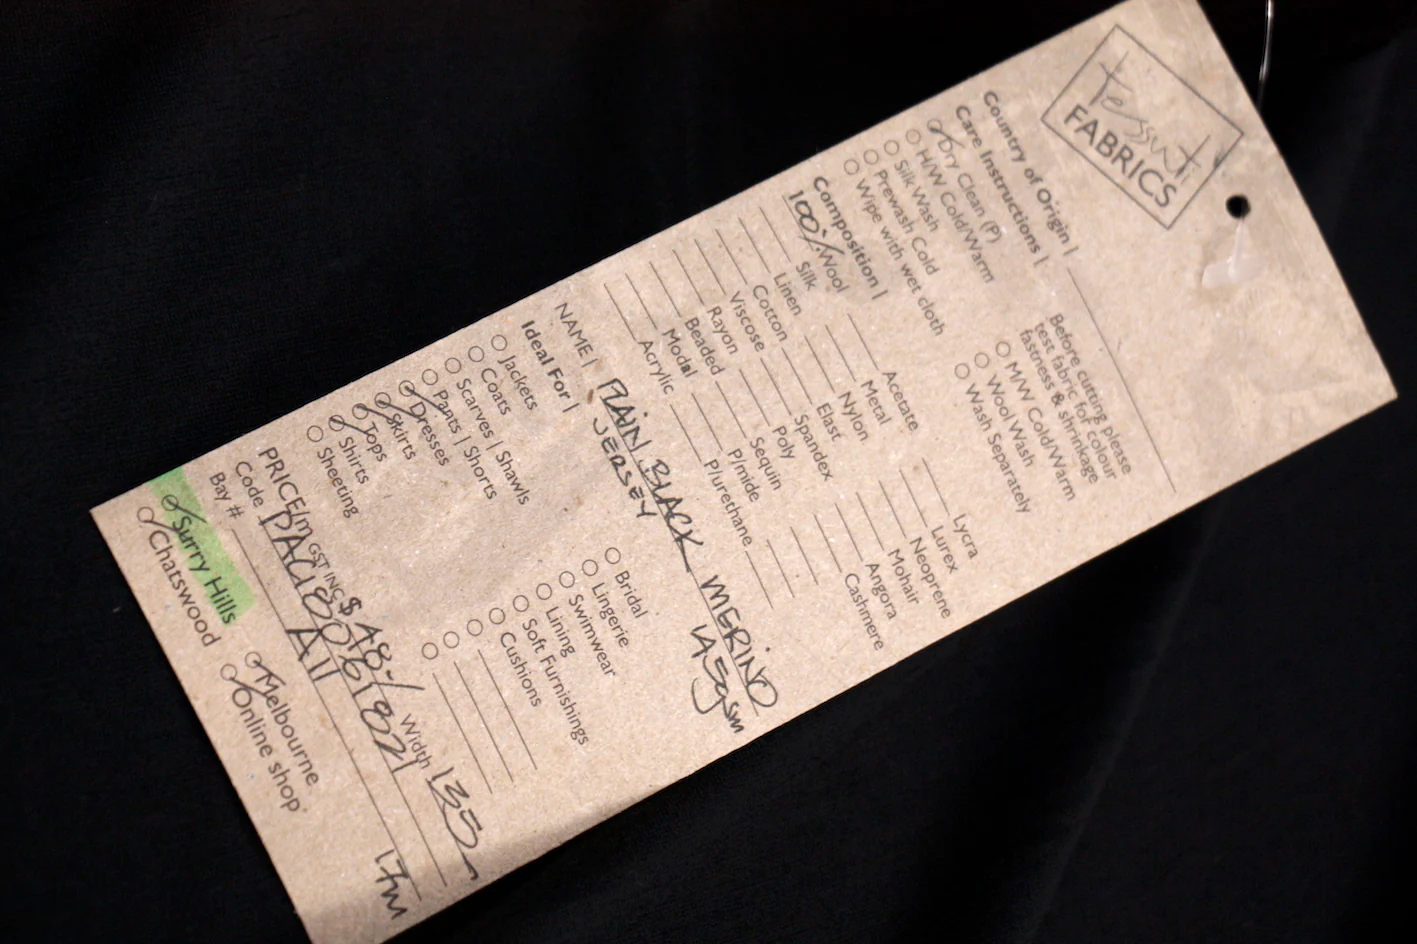 tessuti
FABRICS
Country of Origin |
Care Instructions |
Dry Clean (P)
H/W Cold/Warm
Silk Wash
Prewash Cold
Wipe with wet cloth
Before cutting please
test fabric for colour
fastness & shrinkage
M/W Cold/Warm
Wool Wash
Wash Separately
Composition |
100% Wool
Silk
Linen
Cotton
Viscose
Rayon
Beaded
Modal
Acrylic
Acetate
Metal
Nylon
Elast
Spandex
Poly
Sequin
P/mide
P/urethane
Lycra
Lurex
Neoprene
Mohair
Angora
Cashmere
NAME | PLAIN BLACK MERINO
JERSEY 145gsm
Ideal For |
Jackets
Coats
Scarves | Shawls
Pants | Shorts
Dresses
Skirts
Tops
Shirts
Sheeting
Bridal
Lingerie
Swimwear
Lining
Soft Furnishings
Cushions
PRICE/m GST INC $ 48-/ Width 135
Code PACI80061821
Bay # A11 1.7m
Surry Hills Melbourne
Chatswood Online shop